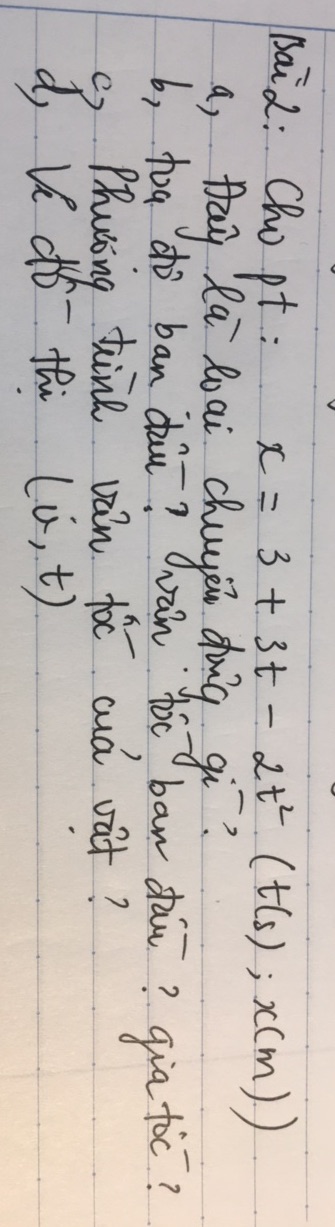 Bài 2: Cho pt: x = 3 + 3t - 2t² (t(s); x(m))
a, Đây là loại chuyển động gì?
b, toạ độ ban đầu? vận tốc ban đầu? gia tốc?
c, Phương trình vận tốc của vật?
d, Vẽ đồ thị (v, t)